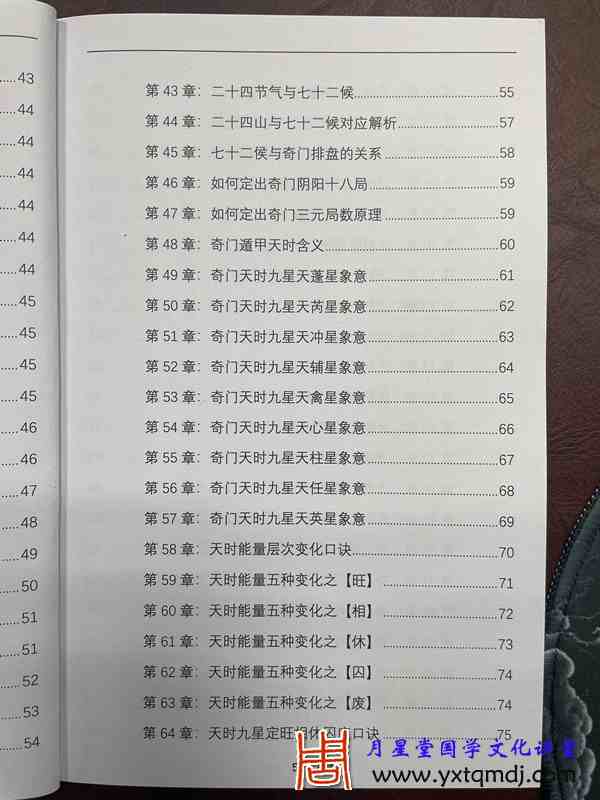 43
44
44
44
44
44
44
45
45
45
45
46
46
47
48
49
50
51
51
52
53
54
第 43 章：二十四节气与七十二候....55
第 44 章：二十四山与七十二候对应解析....57
第 45 章：七十二侯与奇门排盘的关系....58
第 46 章：如何定出奇门阴阳十八局....59
第 47 章：如何定出奇门三元局数原理....59
第 48 章：奇门遁甲天时含义....60
第 49 章：奇门天时九星天蓬星象意....61
第 50 章：奇门天时九星天芮星象意....62
第 51 章：奇门天时九星天冲星象意....63
第 52 章：奇门天时九星天辅星象意....64
第 53 章：奇门天时九星天禽星象意....65
第 54 章：奇门天时九星天心星象意....66
第 55 章：奇门天时九星天柱星象意....67
第 56 章：奇门天时九星天任星象意....68
第 57 章：奇门天时九星天英星象意....69
第 58 章：天时能量层次变化口诀....70
第 59 章：天时能量五种变化之【旺】....71
第 60 章：天时能量五种变化之【相】....72
第 61 章：天时能量五种变化之【休】....73
第 62 章：天时能量五种变化之【囚】....74
第 63 章：天时能量五种变化之【废】....74
第 64 章：天时九星定旺相休囚口诀....75
月星堂国学文化讲堂
www.yxtqmdj.com